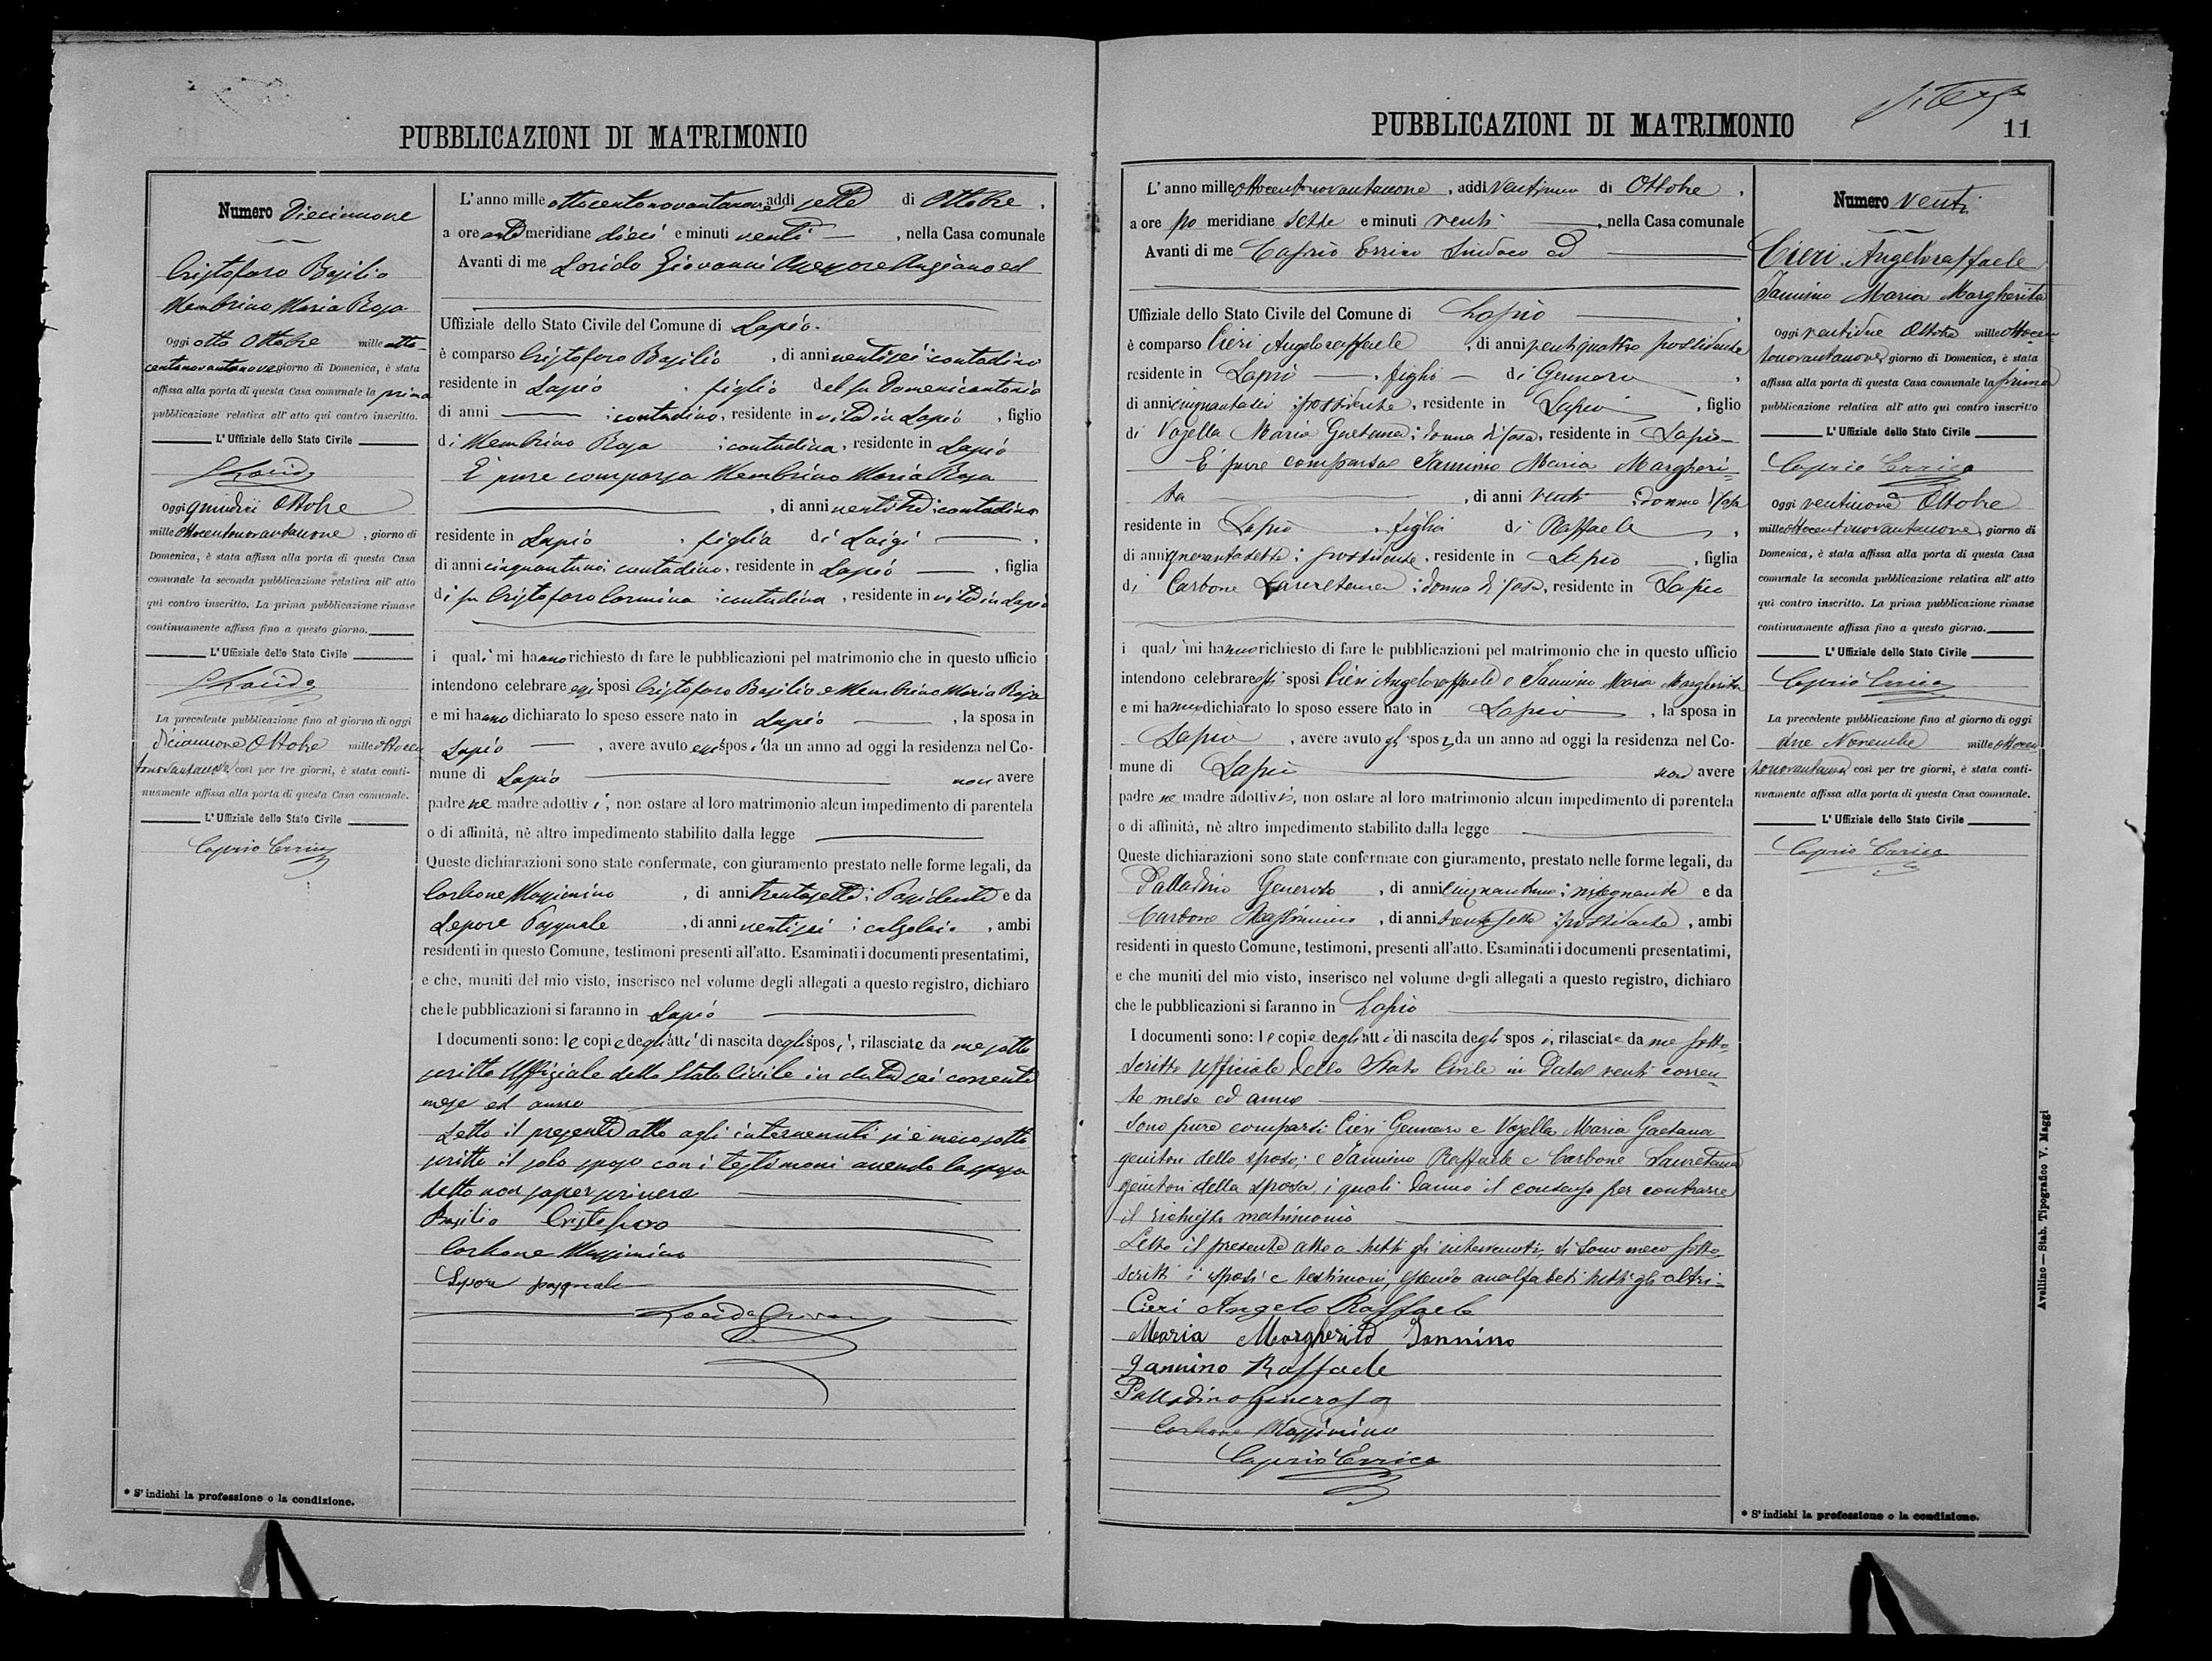 PUBBLICAZIONI DI MATRIMONIO
Numero Diecinnove
Cristofaro Basilio
Membrino Maria Rosa
Oggi otto Ottobre mille otto-
centonovantanove giorno di Domenica, è stata
affissa alla porta di questa Casa comunale la prima
pubblicazione relativa all' atto qui contro inscritto.
L' Uffiziale dello Stato Civile
Oggi quindici Ottobre
mille ottocentonovantanove, giorno di
Domenica, è stata affissa alla porta di questa Casa
comunale la seconda pubblicazione relativa all' atto
qui contro inscritto. La prima pubblicazione rimase
continuamente affissa fino a questo giorno.
L' Uffiziale dello Stato Civile
La precedente pubblicazione fino al giorno di oggi
diciannove Ottobre mille ottocen
tonovantanove così per tre giorni, è stata conti-
nuamente affissa alla porta di questa Casa comunale.
L' Uffiziale dello Stato Civile
Caprio Errico
* S' indichi la professione o la condizione.
L' anno mille ottocentonovantanove addì sette di Ottobre,
a ore anti meridiane dieci e minuti venti, nella Casa comunale
Avanti di me Lorido Giovanni Assessore Anziano ed
Uffiziale dello Stato Civile del Comune di Lapio.
è comparso Cristofaro Basilio, di anni ventisei contadino
residente in Lapio, figlio del fu Domenicantonio
di anni : contadino, residente in vita in Lapio, figlio
di Membrino Rosa : contadina, residente in Lapio
È pure comparsa Membrino Maria Rosa
, di anni ventitre : contadina
residente in Lapio, figlia di Luigi,
di anni cinquantuno; contadino, residente in Lapio, figlia
di fu Cristofaro Carmina : contadina, residente in vita in Lapio
i quali mi hanno richiesto di fare le pubblicazioni pel matrimonio che in questo ufficio
intendono celebrare essi sposi Cristofaro Basilio e Membrino Maria Rosa
e mi hanno dichiarato lo sposo essere nato in Lapio, la sposa in
Lapio, avere avuto essi sposi da un anno ad oggi la residenza nel Co-
mune di Lapio non avere
padre ne madre adottivi, non ostare al loro matrimonio alcun impedimento di parentela
o di affinità, nè altro impedimento stabilito dalla legge
Queste dichiarazioni sono state confermate, con giuramento prestato nelle forme legali, da
Carbone Massimino, di anni trentasette : Possidente e da
Lepore Pasquale, di anni ventisei : calzolaio, ambi
residenti in questo Comune, testimoni presenti all'atto. Esaminati i documenti presentatimi,
e che, muniti del mio visto, inserisco nel volume degli allegati a questo registro, dichiaro
che le pubblicazioni si faranno in Lapio
I documenti sono: le copie degli atti di nascita degli sposi, rilasciate da me sotto
scritto Uffiziale dello Stato Civile in data sei corrente
mese ed anno
Letto il presente atto agli intervenuti si è meco sotto
scritto il solo sposo con i testimoni avendo la sposa
detto non saper scrivere
Basilio Cristofaro
Carbone Massimino
Lepore pasquale
PUBBLICAZIONI DI MATRIMONIO
11
L' anno mille ottocentonovantanove, addì ventuno di Ottobre,
a ore po meridiane sette e minuti venti, nella Casa comunale
Avanti di me Caprio Errico Sindaco ed
Uffiziale dello Stato Civile del Comune di Lapio
è comparso Cieri Angeloraffaele, di anni ventiquattro possidente
residente in Lapio, figlio di Gennaro,
di anni cinquantasei : possidente, residente in Lapio, figlio
di Vozella Maria Gaetana : donna di casa, residente in Lapio
È pure comparsa Iannino Maria Margheri-
ta, di anni venti : donna di casa
residente in Lapio, figlia di Raffaele,
di anni quarantasette : possidente, residente in Lapio, figlia
di Carbone Lauretana : donna di casa, residente in Lapio
i quali mi hanno richiesto di fare le pubblicazioni pel matrimonio che in questo ufficio
intendono celebrare essi sposi Cieri Angeloraffaele e Iannino Maria Margherita
e mi hanno dichiarato lo sposo essere nato in Lapio, la sposa in
Lapio, avere avuto gli sposi da un anno ad oggi la residenza nel Co-
mune di Lapio non avere
padre ne madre adottivi, non ostare al loro matrimonio alcun impedimento di parentela
o di affinità, nè altro impedimento stabilito dalla legge
Queste dichiarazioni sono state confermate con giuramento, prestato nelle forme legali, da
Palladino Generoso, di anni cinquantuno : insegnante e da
Carbone Massimino, di anni trentasette : possidente, ambi
residenti in questo Comune, testimoni, presenti all'atto. Esaminati i documenti presentatimi,
e che muniti del mio visto, inserisco nel volume degli allegati a questo registro, dichiaro
che le pubblicazioni si faranno in Lapio
I documenti sono: le copie degli atti di nascita degli sposi, rilasciate da me sotto-
scritto Ufficiale dello Stato Civile in data venti corren-
te mese ed anno
Sono pure comparsi Cieri Gennaro e Vozella Maria Gaetana
genitori dello sposo; e Iannino Raffaele e Carbone Lauretana
genitori della sposa, i quali danno il consenso per contrarre
il richiesto matrimonio
Letto il presente atto a tutti gli intervenuti, si sono meco sotto-
scritti i sposi e testimoni, essendo analfabeti tutti gli altri-
Cieri Angelo Raffaele
Maria Margherita Iannino
Iannino Raffaele
Palladino Generoso
Carbone Massimino
Caprio Errico
Numero venti
Cieri Angeloraffaele
Iannino Maria Margherita
Oggi ventidue Ottobre mille ottocen
tonovantanove, giorno di Domenica, è stata
affissa alla porta di questa Casa comunale la prima
pubblicazione relativa all' atto qui contro inscritto
L' Uffiziale dello Stato Civile
Caprio Errico
Oggi ventinove Ottobre
mille ottocentonovantanove, giorno di
Domenica, è stata affissa alla porta di questa Casa
comunale la seconda pubblicazione relativa all' atto
qui contro inscritto. La prima pubblicazione rimase
continuamente affissa fino a questo giorno.
L' Uffiziale dello Stato Civile
Caprio Errico
La precedente pubblicazione fino al giorno di oggi
due Novembre mille ottocen
tonovantanove così per tre giorni, è stata conti-
nuamente affissa alla porta di questa Casa comunale.
L' Uffiziale dello Stato Civile
Caprio Errico
* S' indichi la professione o la condizione.
Avellino — Stab. Tipografico V. Maggi